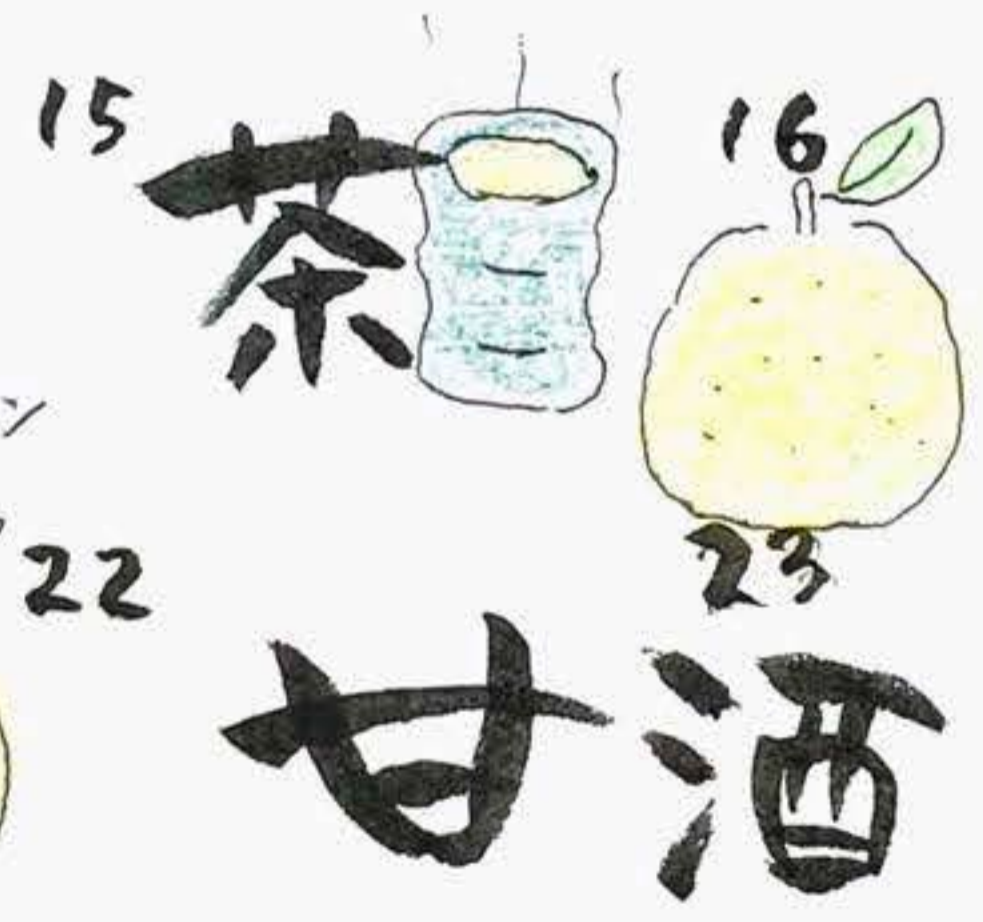 15 16
茶
22 23
甘酒